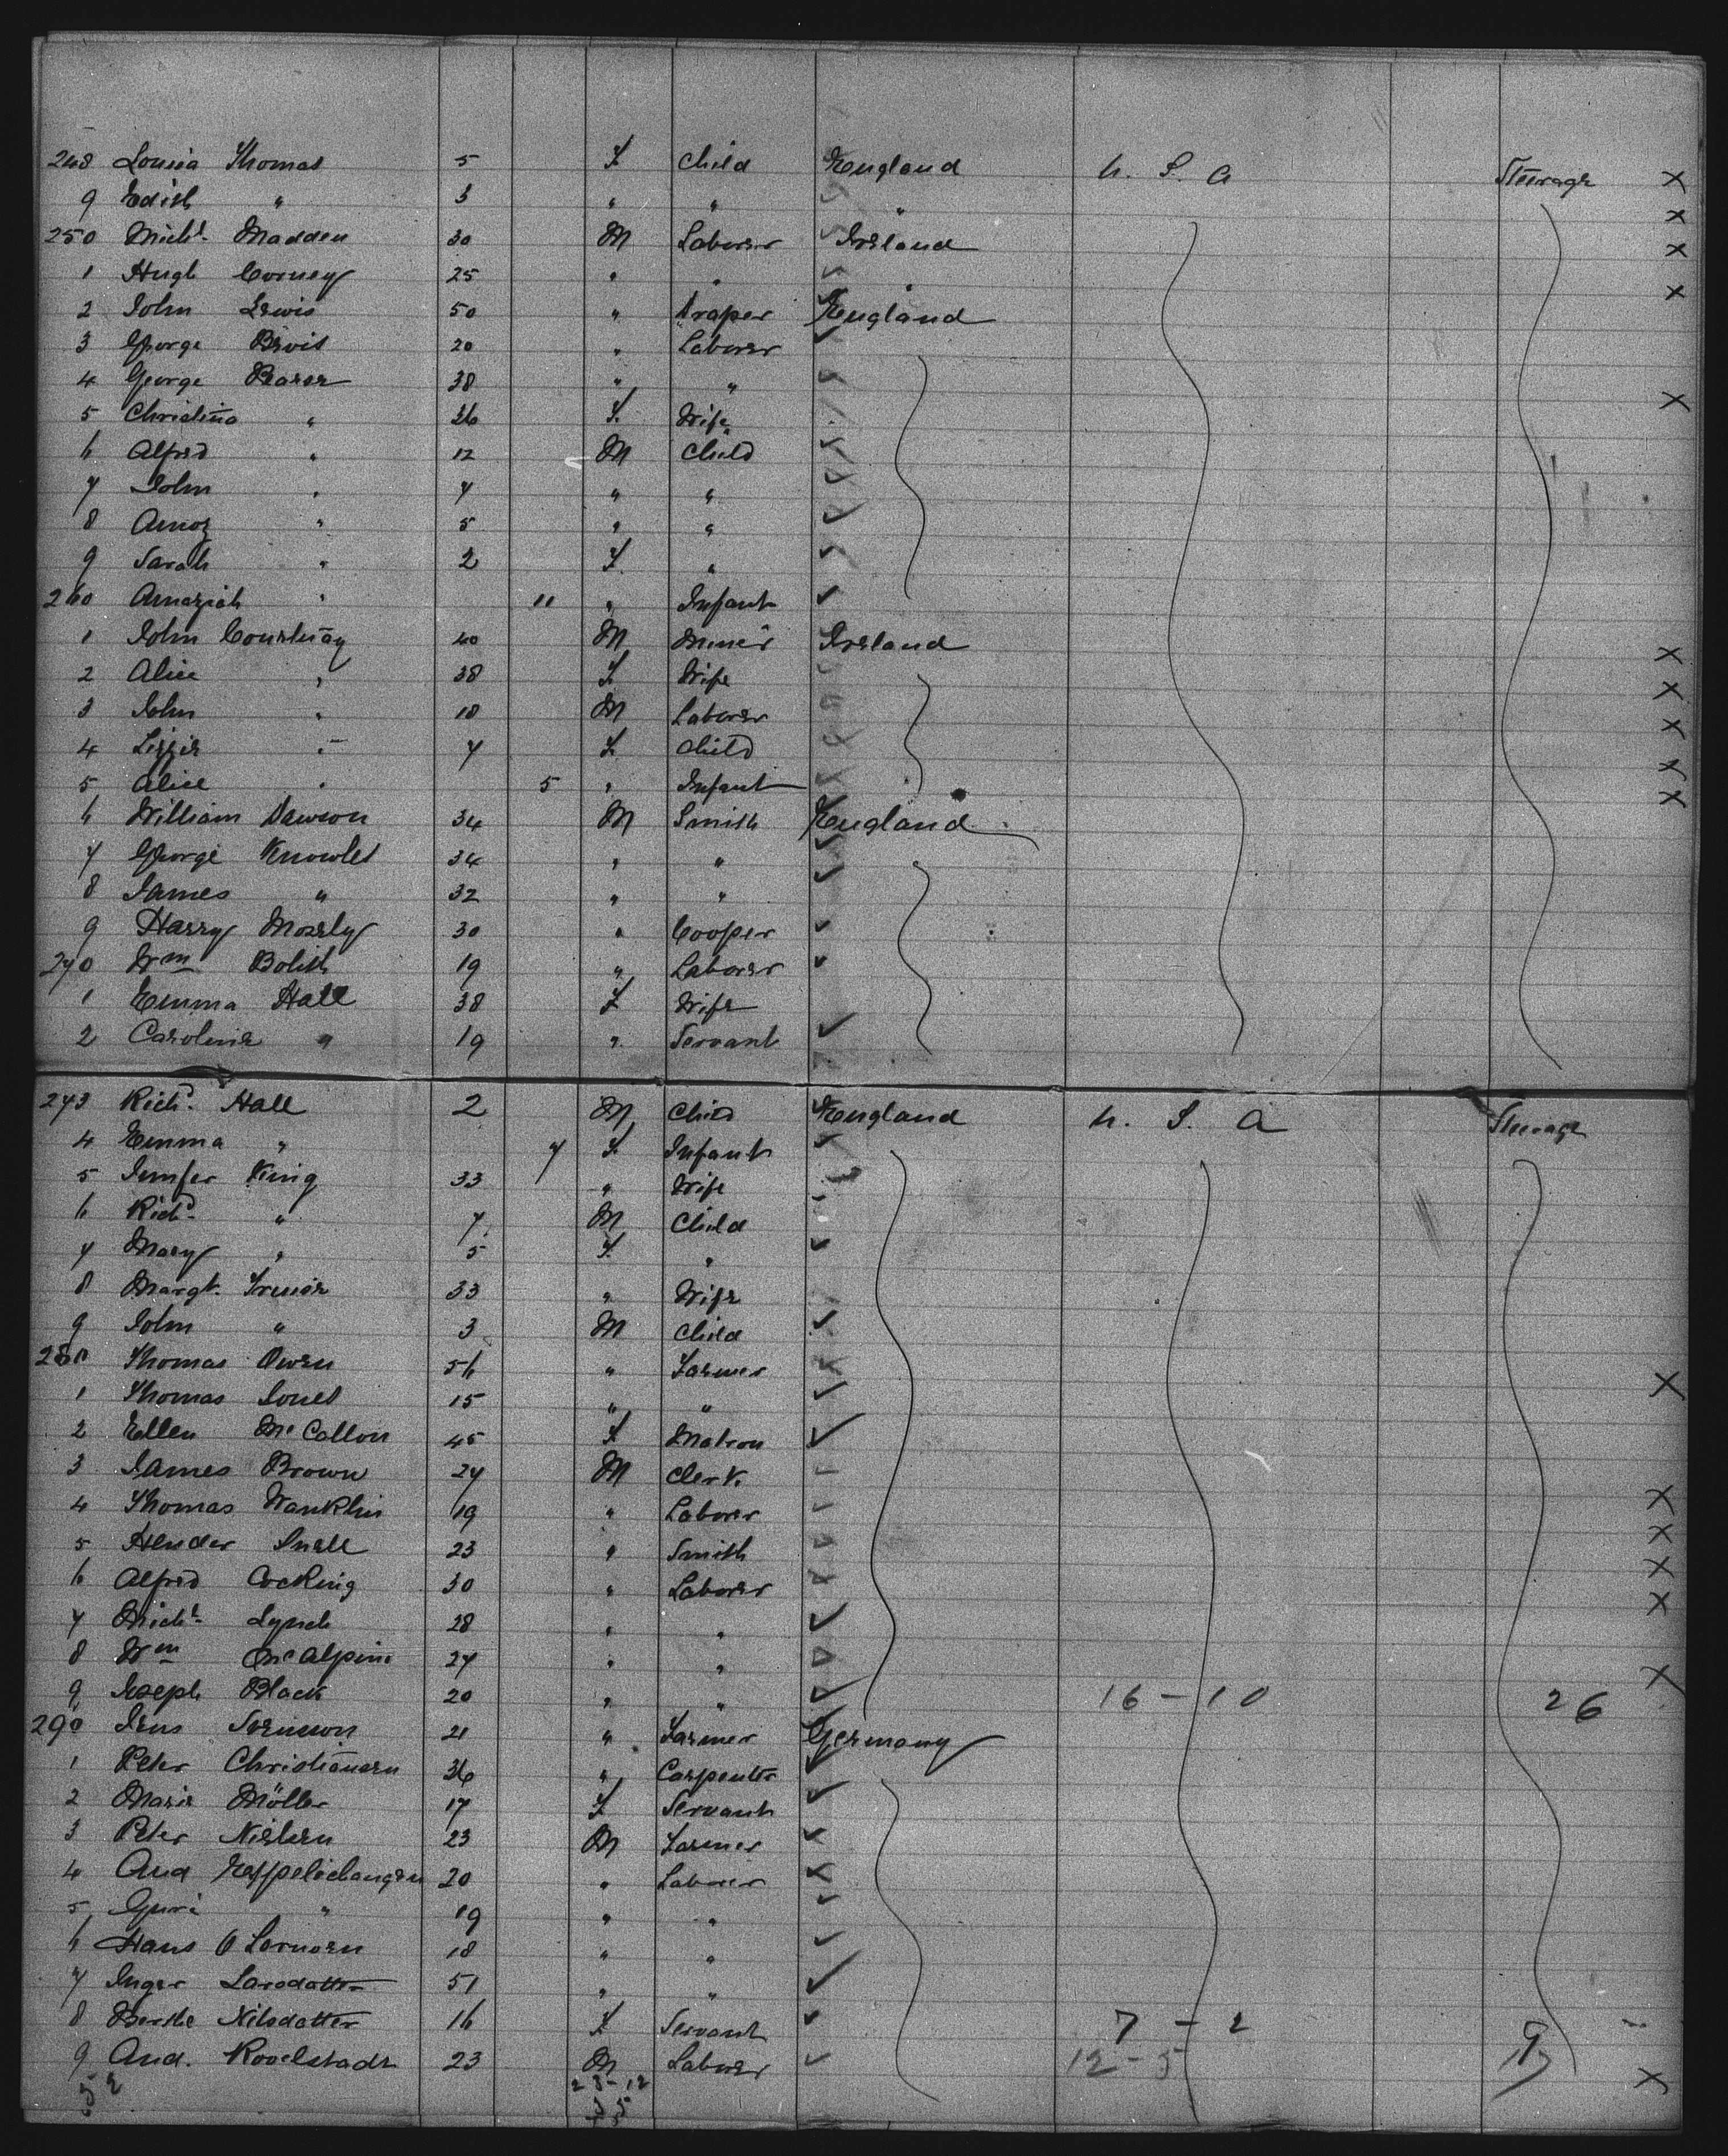 248 Louisa Thomas 5 F. Child England U. S. A Steerage X
9 Edith " 3 " " " X
250 Michl. Madden 30 M Laborer Ireland X
1 Hugh Corney 25 " " " X
2 John Lewis 50 " Draper England
3 George Bevis 20 " Laborer
4 George 38 " " X
5 Christina " 26 F. Wife
6 Alfred " 12 M Child
7 John " 7 " "
8 Amoz " 5 " "
9 Sarah " 2 F. "
260 Amaziah " 11 " Infant
1 John Courtnay 40 M Miner Ireland X
2 Alice " 38 F. Wife X
3 John " 18 M Laborer X
4 Lizzie " 7 F. Child X
5 Alice " 5 " Infant X
6 William Dawson 34 M Smith England
7 George Knowles 34 " "
8 James " 32 " "
9 Harry Mozely 30 " Cooper
270 Wm 19 " Laborer
1 Emma Hall 38 F Wife
2 Caroline " 19 " Servant
273 Richd. Hall 2 M Child England U. S. A Steerage
4 Emma " 7 F. Infant
5 King 33 " Wife
6 Richd. " 7 M Child
7 Mary " 5 F. "
8 Margt. 33 " Wife
9 John " 3 M Child
280 Thomas Owen 56 " Farmer X
1 Thomas Jones 15 " "
2 Ellen McCallon 45 F Matron
3 James Brown 27 M Clerk
4 Thomas Wanklin 19 " Laborer X
5 Hender Snell 23 " Smith X
6 Alfred Cocking 30 " Laborer X
7 Michl. Lynch 28 " " X
8 Wm McAlpine 27 " "
9 Joseph Black 20 " " 16 - 10 26 X
290 Jens 21 " Farmer Germany
1 Peter Christiansen 36 " Carpenter
2 Marie Möller 17 F Servant
3 Peter Nielsen 23 M Farmer
4 And 20 " Laborer
5 Guri " 19 " "
6 Hans O 18 " "
7 Inger Larsdatter 51 " "
8 Berthe Nilsdatter 16 F Servant 7 - 2 9
9 And. 23 M Laborer 12 - 5 X
52 23-12